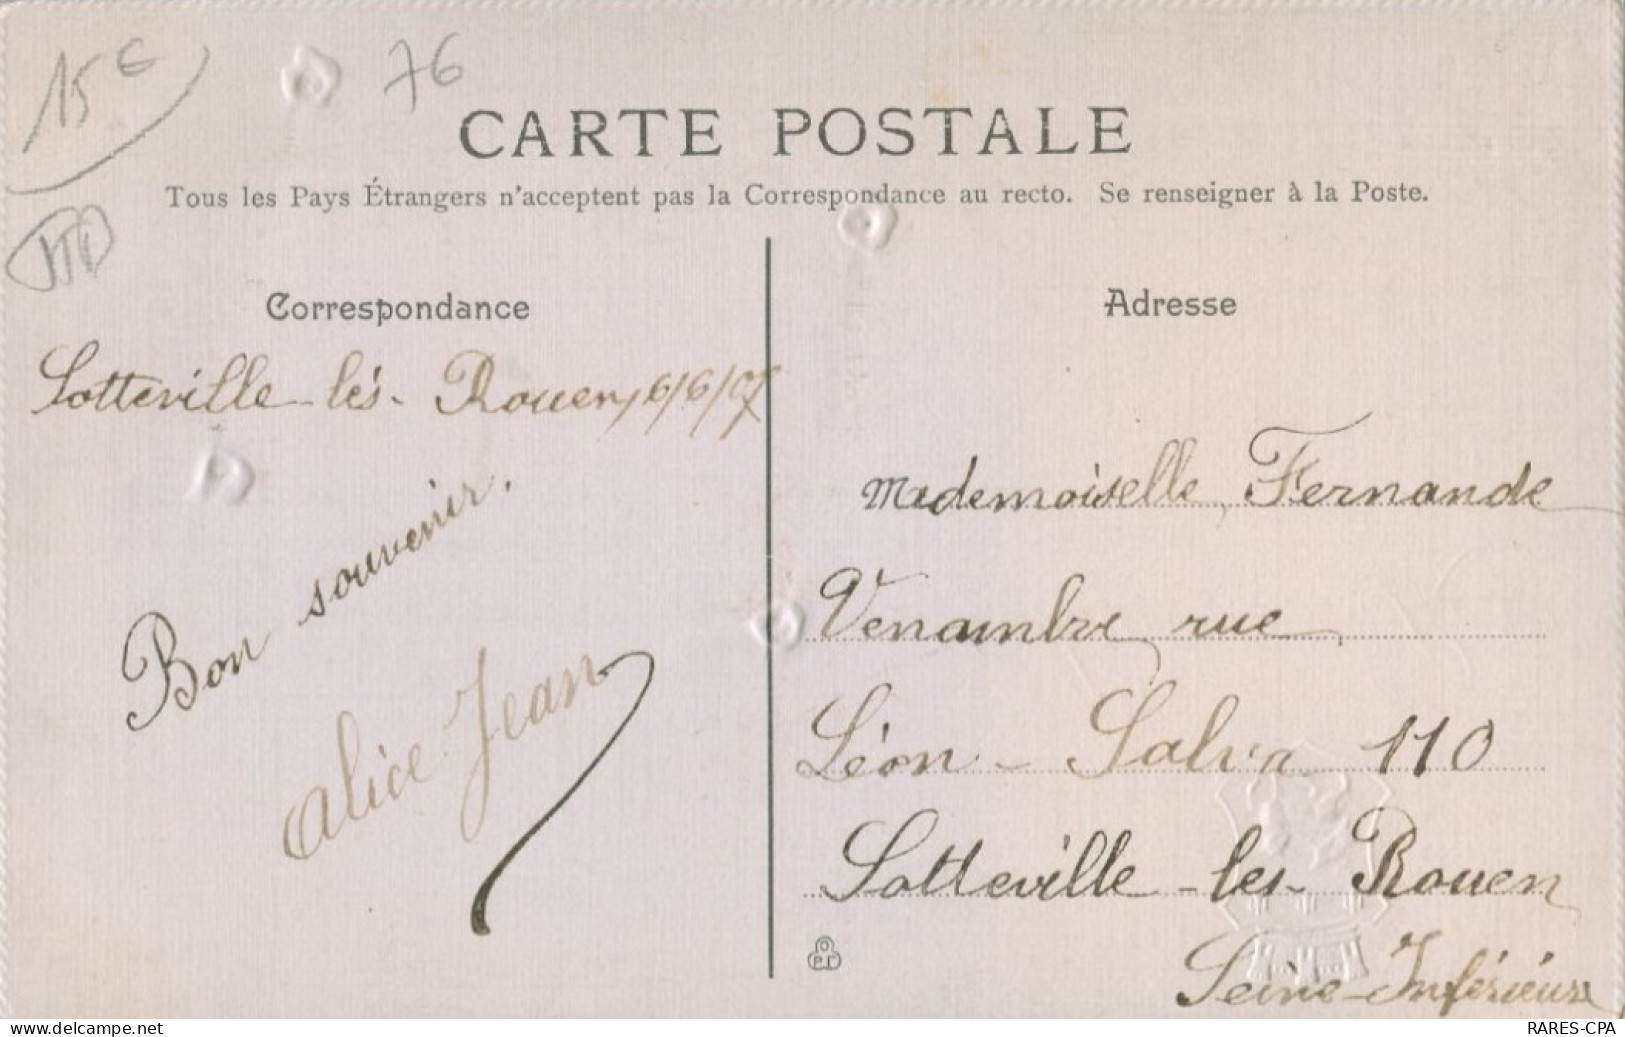 15 €
76
CARTE POSTALE
Tous les Pays Étrangers n'acceptent pas la Correspondance au recto. Se renseigner à la Poste.
Correspondance
Sotteville-lès-Rouen, 6/6/07
Bon souvenir.
Alice Jean
Adresse
Mademoiselle Fernande
Venambre rue
Léon-Salva 110
Sotteville-les-Rouen
Seine-Inférieure
www.delcampe.net
RARES-CPA